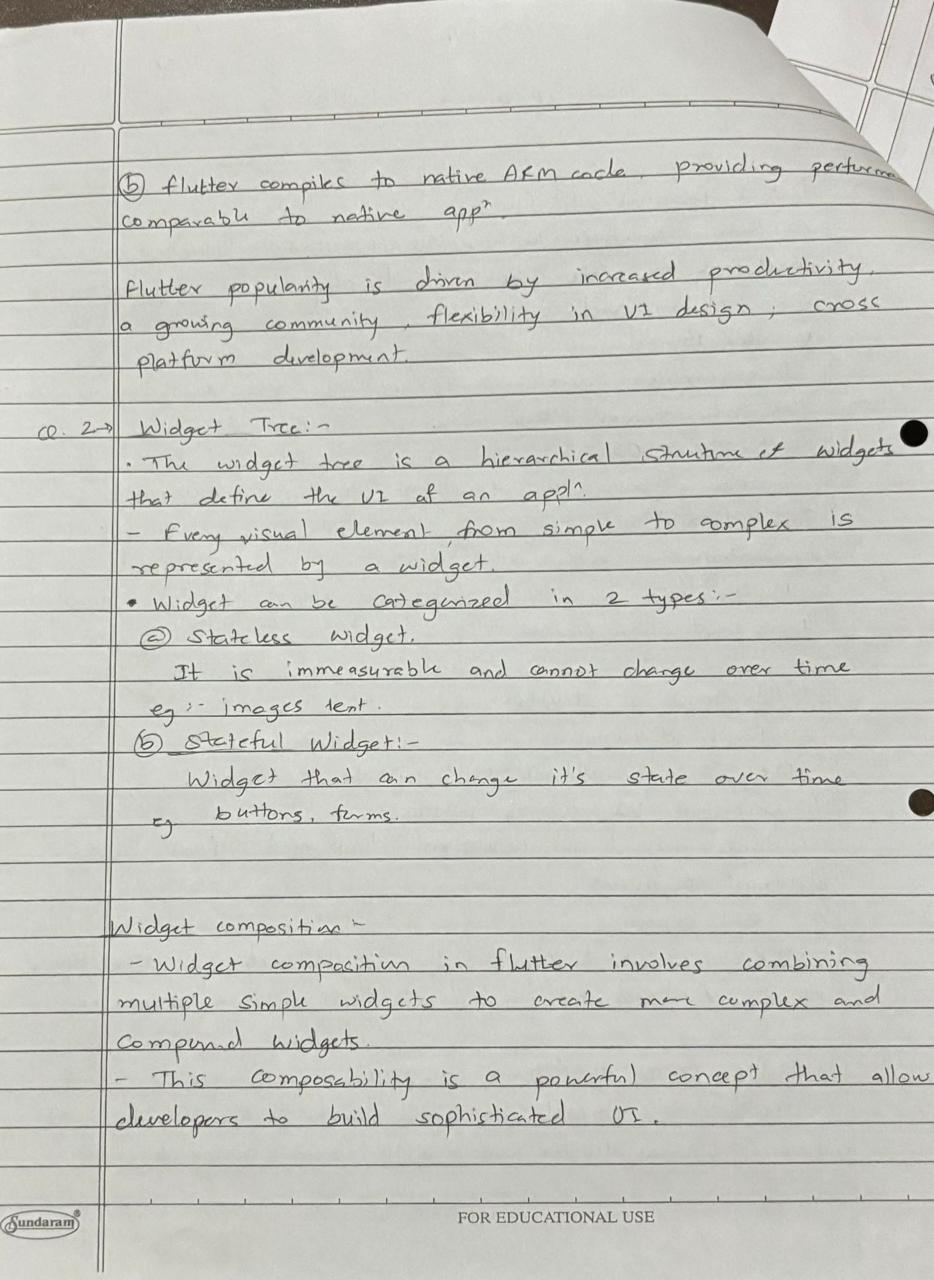 (b) flutter compiles to native ARM code. providing performa
comparable to native appⁿ.
Flutter popularity is driven by increased productivity,
a growing community, flexibility in UI design, cross
platform development.
Q. 2→ Widget Tree:-
• The widget tree is a hierarchical structure of widgets
that define the UI of an applⁿ.
- Every visual element, from simple to complex is
represented by a widget.
• Widget can be categorized in 2 types:-
(a) Stateless widget.
It is immeasurable and cannot change over time
eg:- images text.
(b) Stateful Widget:-
Widget that can change it's state over time
Eg buttons, forms.
Widget composition -
- Widget composition in flutter involves combining
multiple simple widgets to create more complex and
compound widgets.
- This composability is a powerful concept that allow
developers to build sophisticated UI.
Sundaram®
FOR EDUCATIONAL USE